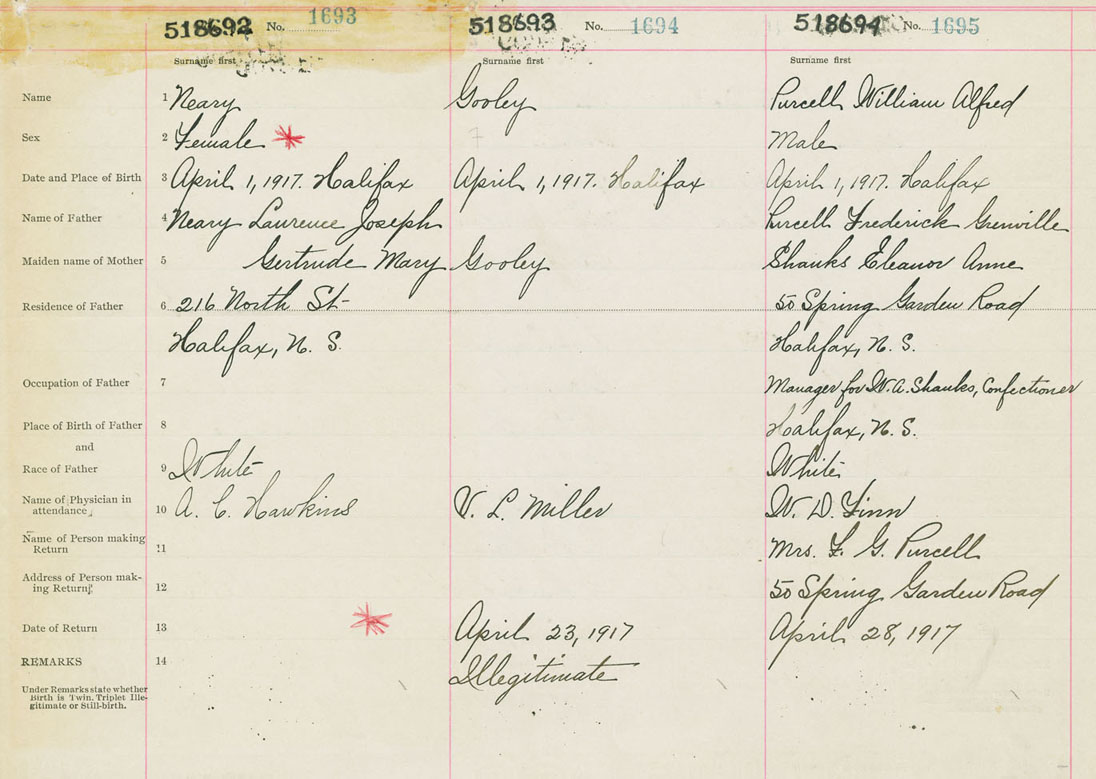 518692 No. 1693 518693 No. 1694 518694 No. 1695
Surname first Surname first Surname first
Name 1 Neary Gooley Purcell William Alfred
Sex 2 Female * Male
Date and Place of Birth 3 April 1, 1917. Halifax April 1, 1917. Halifax April 1, 1917. Halifax
Name of Father 4 Neary Laurence Joseph Purcell Frederick Grenville
Maiden name of Mother 5 Gertrude Mary Gooley Shanks Eleanor Anne
Residence of Father 6 216 North St- 50 Spring Garden Road
Halifax, N. S. Halifax, N. S.
Occupation of Father 7 Manager for W. A. Shanks, Confectioner
Place of Birth of Father 8 Halifax, N. S.
and
Race of Father 9 White White
Name of Physician in
attendance 10 A. C. Hawkins V. L. Miller W. D. Finn
Name of Person making
Return 11 Mrs. F. G. Purcell
Address of Person mak-
ing Return 12 50 Spring Garden Road
Date of Return 13 * April 23, 1917 April 28, 1917
REMARKS 14 Illegitimate
Under Remarks state whether
Birth is Twin, Triplet Ille-
gitimate or Still-birth.